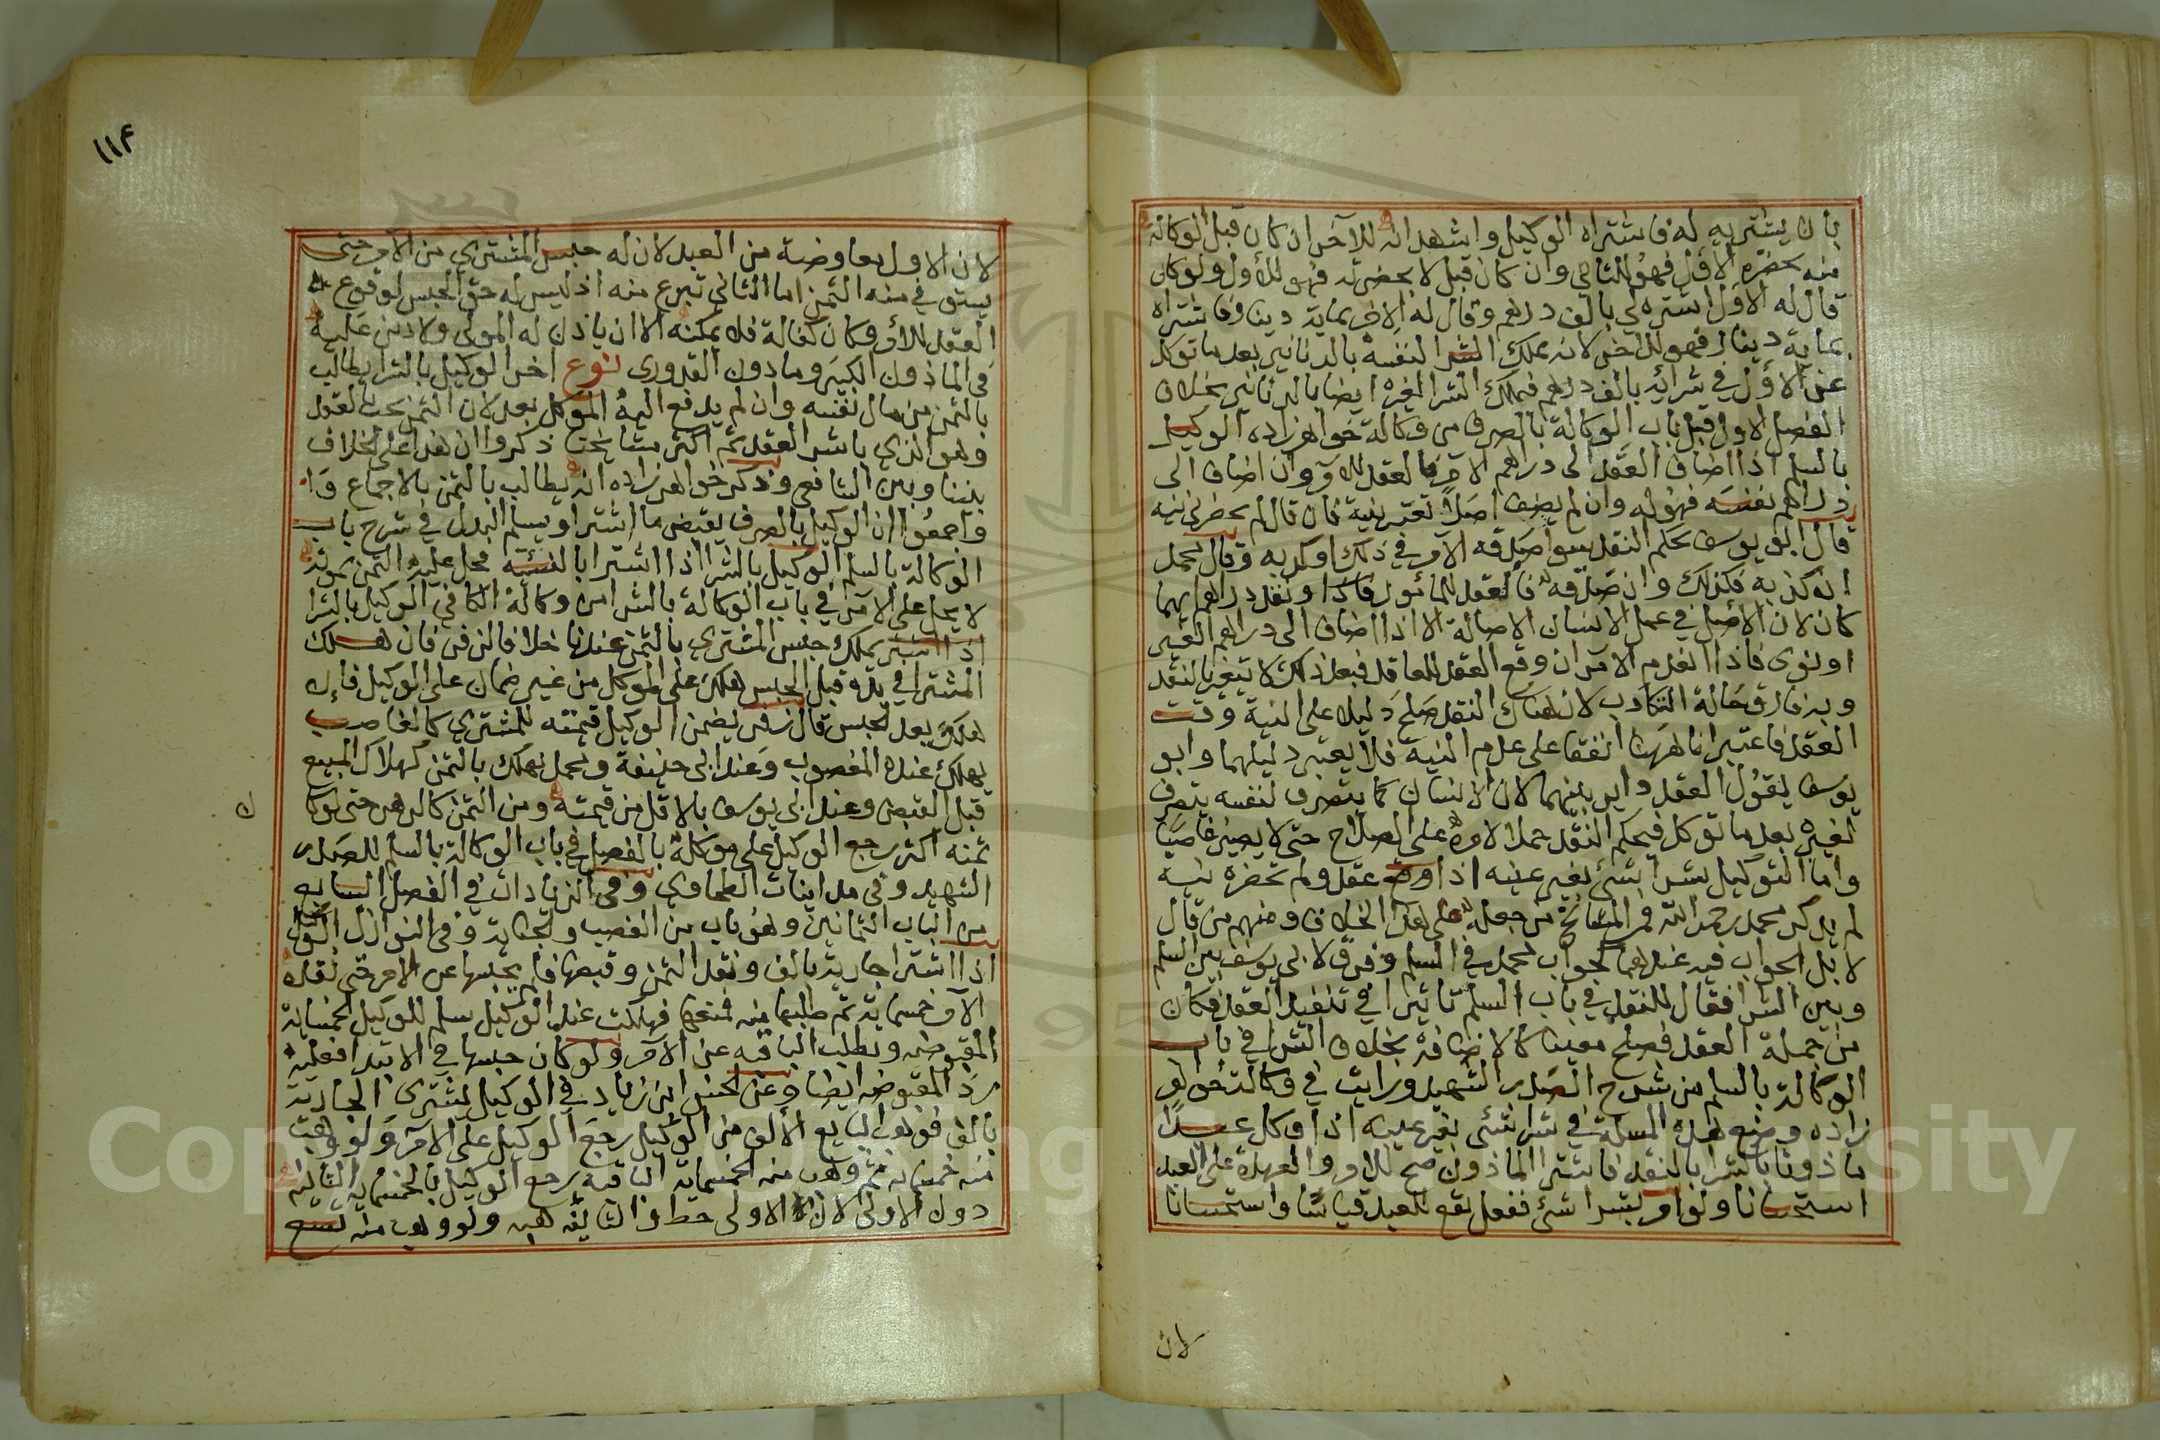 بان يشتريه له فاشتراه الوكيل واشهد انه للآخر ان كان قبل الوكالة
منه بحضرة الاول فهو للثاني وان كان قبل لا بحضرته فهو للأول ولو كان
قال له الاول اشتره لي بالف درهم وقال له الآخر بماية دينار فاشتراه
بماية دينار فهو للاخر لانه يملك الشرا لنفسه بالدنانير بعد ما توكل
عن الأول في شرائه بالف درهم فيملك الشرا لغيره ايضا بالدنانير بخلاف
الفصل الاول قبل باب الوكالة بالصرف من وكالة خواهرزاده الوكيل
بالسلم اذا اضاف العقد الى دراهم الآمر فالعقد للآمر وان اضاف الى
دراهم نفسه فهو له وان لم يضف اصلا تعتبر نية فان قال لم يحضرني نية
قال ابو يوسف يحكم النقد سوا صدقه الآمر في ذلك او كذبه وقال محمد
ان كذبه فكذلك وان صدقه فالعقد للمأمور فاذا ونقد دراهم ايهما
كان لان الأصل في عمل الانسان الاصالة الا اذا اضاف الى دراهم الغير
او نوى فاذا انعدم الامران وقع العقد للعاقد فبعد ذلك لا يتغير بالنقد
وبه فارق حالة التكاذب لان هناك النقد صلح دليلا على النية وقت
العقد فاعتبرنا ههنا اتفقا على عدم النية فلا يعتبر دليلهما وابو
يوسف يقول العقد داير بينهما لان الانسان كما يتصرف لنفسه يتصرف
لغيره بعد ما توكل فيحكم النقد حملا لامره على الصلاح حتى لا يصير غاصبا
واما التوكيل بشرا شئ بغير عينه اذا عقد ولم تحضره نية
لم يذكر محمد رحمه الله فمن المشائخ من جعله على هذا الخلاف ومنهم من قال
لا بل الجواب فيه عندهما كجواب محمد في السلم وفرق لابي يوسف بين السلم
وبين الشرا فقال للنقد في باب السلم تاثيرا في تنفيذ العقد فكان
من جملة العقد فصلح معينا كالاضافة بخلاف الشرا في باب
الوكالة بالسلم من شرح الصدر الشهيد ورايت في وكالة خواهر
زاده وضع هذه المسلة في شرا شئ بغير عينه اذا وكل عبدا
ماذونا بالشرا بالنقد فاشترا الماذون صح للامر والعهدة على العبد
استحسانا ولو امر بشرا شئ ففعل يقع للعبد قياسا واستحسانا
لان
١١٤
لان الاول معاوضة من العبد لان له حبس المشتري من الآمر حتى
يستوفي منه الثمن اما الثاني تبرع منه اذ ليس له حق الحبس لوقوع
العقد للآمر فكان كفالة فلا يمكنه الا ان ياذن له المولى ولا دين عليه
في الماذون الكبير وما دون القدوري نوع اخر الوكيل بالشرا يطالب
بالثمن من مال نفسه وان لم يدفع اليه الموكل بعد لان الثمن يجب بالعقد
وهو الذي باشر العقد ثم اكثر مشايخنا ذكروا ان هذا على الخلاف
بيننا وبين الشافعي وذكر خواهرزاده انه يطالب بالثمن بالاجماع
واجمعوا ان الوكيل بالصرف يقبض ما اشترا ويسلم البدل في شرح باب
الوكالة بالسلم الوكيل بالشرا اذا اشترا بالنسئة فحل عليه الثمن بموته
لا يحل على الآمر في باب الوكالة بالشرا من وكالة الكافي الوكيل بالشرا
اذا اشترى يملك حبس المشتري بالثمن عندنا خلافا لزفر فان هلك
المشترا في يده قبل الحبس هلك على الموكل من غير ضمان على الوكيل فان
هلك بعد الحبس قال زفر يضمن الوكيل قيمته للمشتري كالغاصب
يهلك عنده المغصوب وعند ابي حنيفة ومحمد يهلك بالثمن كهلاك المبيع
قبل القبض وعند ابي يوسف بالاقل من قيمته ومن الثمن كالرهن حتى لو كان
ثمنه اكثر رجع الوكيل على موكله بالفضل في باب الوكالة بالسلم للصدر
الشهيد وفي مداينات الطحاوي وفي الزيادات في الفصل السابع
من الباب الثمانين وهو باب من الغصب والجناية وفي النوازل الوكيل
اذا اشترا جارية بالف ونقد الثمن وقبضها فلم يحبسها عن الامر حتى نقده
الآمر خمسماية ثم طلبها منه فمنعها فهلكت عند الوكيل سلم للوكيل الخمسماية
المقبوضة وبطلت الباقية عن الآمر ولو كان حبسها في الابتدا فعليه
رد المقبوضة ايضا وعن الحسن ابن زياد في الوكيل يشترى الجارية
بالف فوهب البايع الألف من الوكيل رجع الوكيل على الآمر ولو وهب
منه خمسماية ثم وهب منه الخمسماية الباقية رجع الوكيل بالخمسماية الثانية
دون الاولى لان الاولى حط والثانية هبة ولو وهب منه تسع
ن